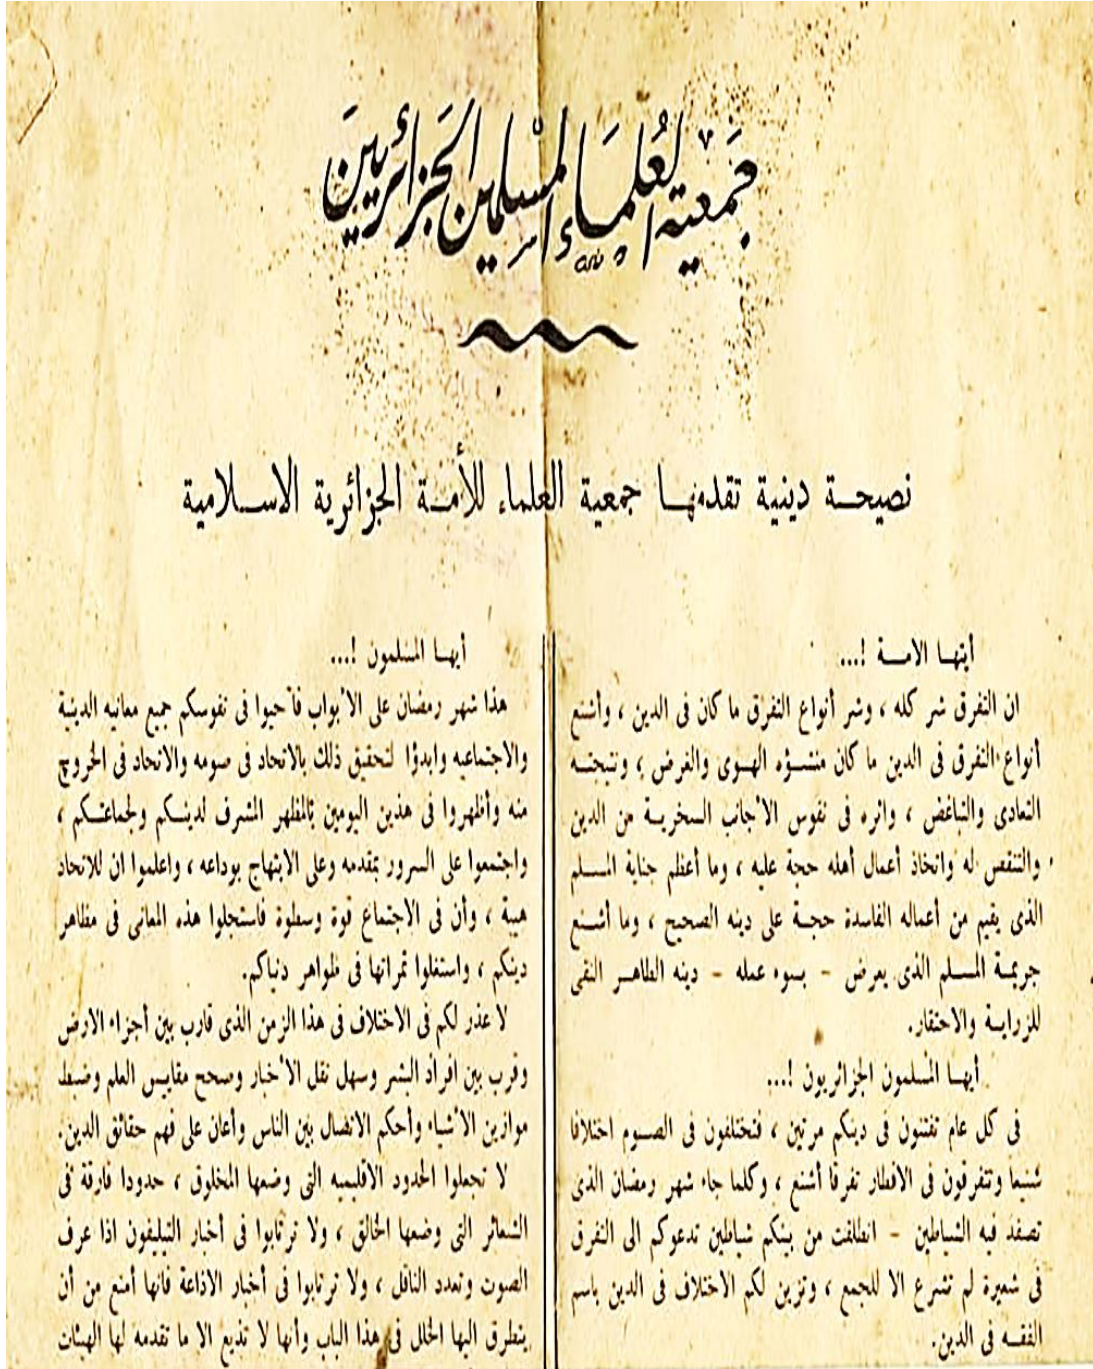 جمعية العلماء المسلمين الجزائريين
نصيحة دينية تقدمها جمعية العلماء للأمة الجزائرية الاسلامية
أيتها الامة !...
ان التفرق شر كله ، وشر أنواع التفرق ما كان فى الدين ، وأشنع
أنواع التفرق فى الدين ما كان منشؤه الهوى والغرض ؛ ونتيجته
التعادى والتباغض ، واثره فى نفوس الأجانب السخرية من الدين
والتنقص له واتخاذ أعمال أهله حجة عليه ، وما أعظم جناية المسلم
الذى يقيم من أعماله الفاسدة حجة على دينه الصحيح ، وما أشنع
جريمة المسلم الذى يعرض - بسوء عمله - دينه الطاهر النقى
للزراية والاحتقار.
أيها المسلمون الجزائريون !...
فى كل عام تفتنون فى دينكم مرتين ، فتختلفون فى الصوم اختلافا
شنيعا وتتفرقون فى الافطار تفرقا أشنع ، وكلما جاء شهر رمضان الذى
تصفد فيه الشياطين - انطلقت من بينكم شياطين تدعوكم الى التفرق
فى شعيرة لم تشرع الا للجمع ، وتزين لكم الاختلاف فى الدين باسم
الفقه فى الدين.
أيها المسلمون !...
هذا شهر رمضان على الأبواب فأحيوا فى نفوسكم جميع معانيه الدينية
والاجتماعيه وابدؤا لتحقيق ذلك بالاتحاد فى صومه والاتحاد فى الخروج
منه وأظهروا فى هذين اليومين بالمظهر المشرف لدينكم ولجماعتكم ،
واجتمعوا على السرور بمقدمه وعلى الابتهاج بوداعه ، واعلموا ان للاتحاد
هيبة ، وأن فى الاجتماع قوة وسطوة فاستجلوا هذه المعانى فى مظاهر
دينكم ، واستغلوا ثمراتها فى ظواهر دنياكم.
لا عذر لكم فى الاختلاف فى هذا الزمن الذى قارب بين أجزاء الارض
وقرب بين افراد البشر وسهل نقل الأخبار وصحح مقاييس العلم وضبط
موازين الأشياء وأحكم الاتصال بين الناس وأعان على فهم حقائق الدين.
لا تجعلوا الحدود الاقليميه التى وضعها المخلوق ، حدودا فارقة فى
الشعائر التى وضعها الخالق ، ولا ترتابوا فى أخبار التيليفون اذا عرف
الصوت وتعدد الناقل ، ولا ترتابوا فى أخبار الاذاعة فانها أمنع من أن
يتطرق اليها الخلل فى هذا الباب وأنها لا تذيع الا ما تقدمه لها الهيئات